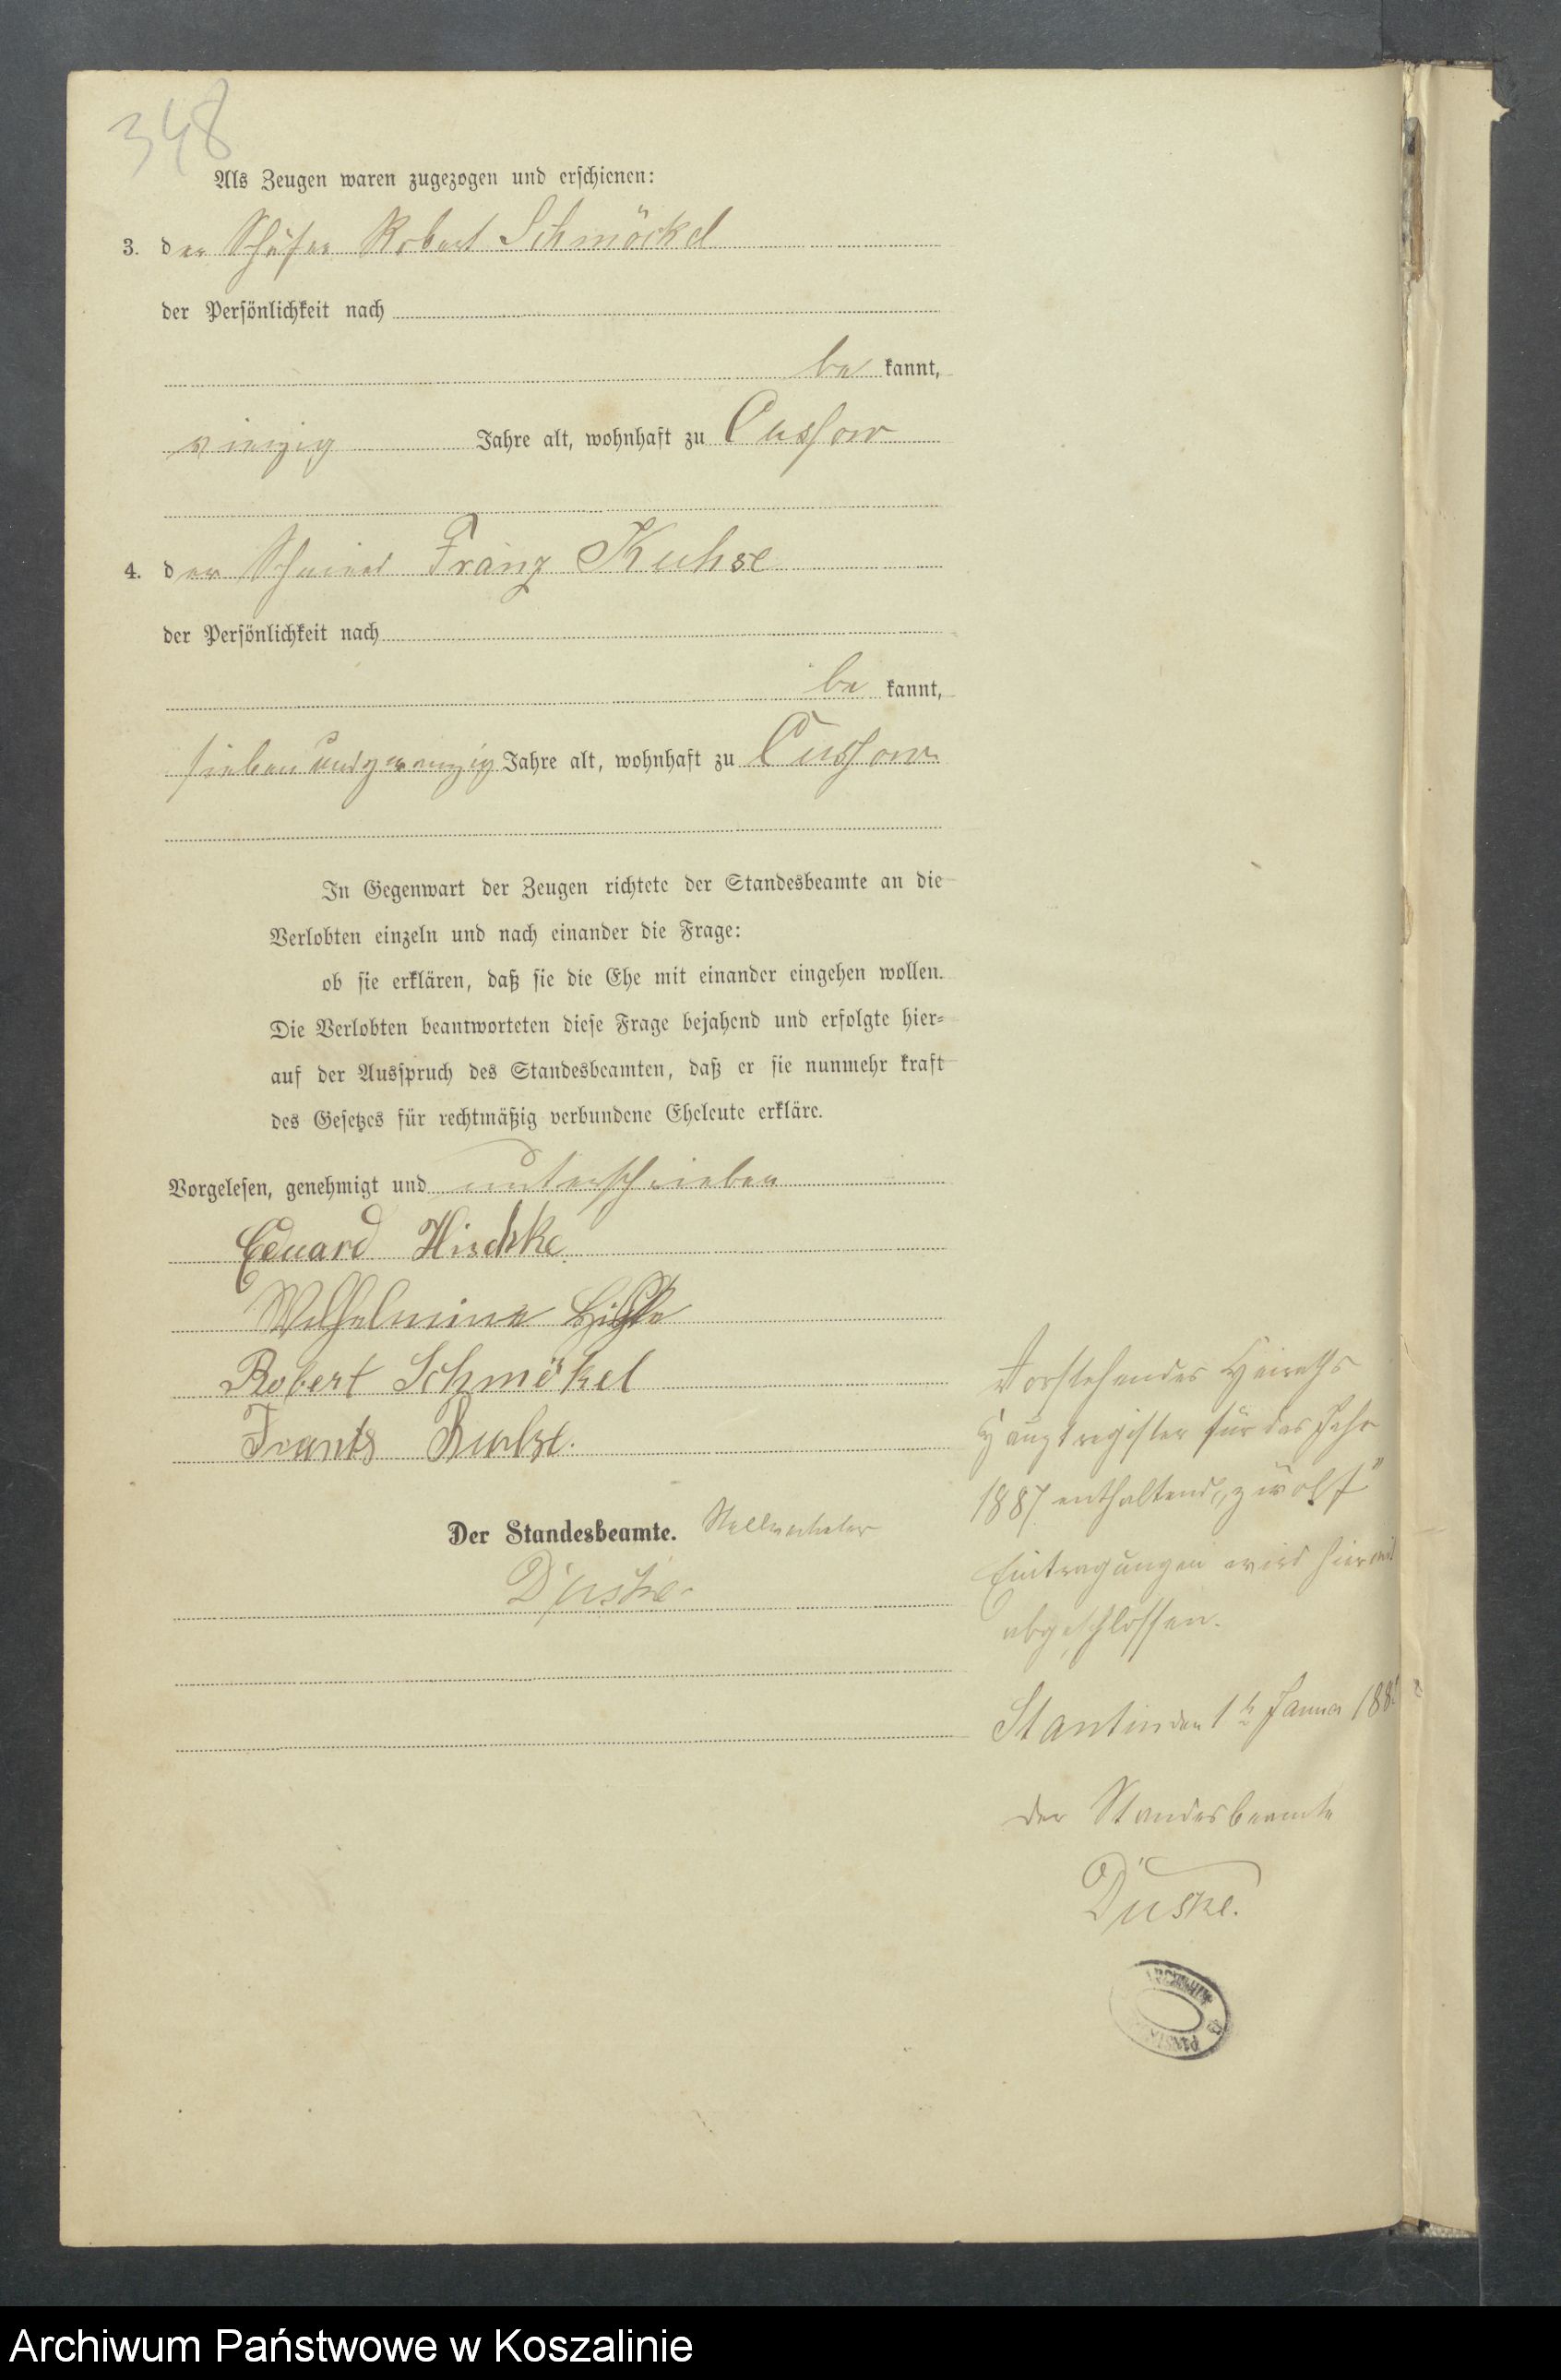 348
Als Zeugen waren zugezogen und erschienen:
3. der Schäfer Robert Schmöckel
der Persönlichkeit nach
be kannt,
vierzig Jahre alt, wohnhaft zu Cussow
4. der Franz Kuhse
der Persönlichkeit nach
be kannt,
siebenundzwanzig Jahre alt, wohnhaft zu Cussow
In Gegenwart der Zeugen richtete der Standesbeamte an die
Verlobten einzeln und nach einander die Frage:
ob sie erklären, daß sie die Ehe mit einander eingehen wollen.
Die Verlobten beantworteten diese Frage bejahend und erfolgte hier-
auf der Ausspruch des Standesbeamten, daß er sie nunmehr kraft
des Gesetzes für rechtmäßig verbundene Eheleute erkläre.
Vorgelesen, genehmigt und unterschrieben
Eduard
Wilhelmine
Robert Schmökel
Frants
Der Standesbeamte. Stellvertreter
Düske
Vorstehendes Heiraths
Hauptregister für das Jahr
1887 enthaltend „zwölf"
Eintragungen wird hiermit
abgeschlossen.
Stantin den 1 Januar 188
Der Standesbeamte
Düske.
Archiwum Państwowe w Koszalinie